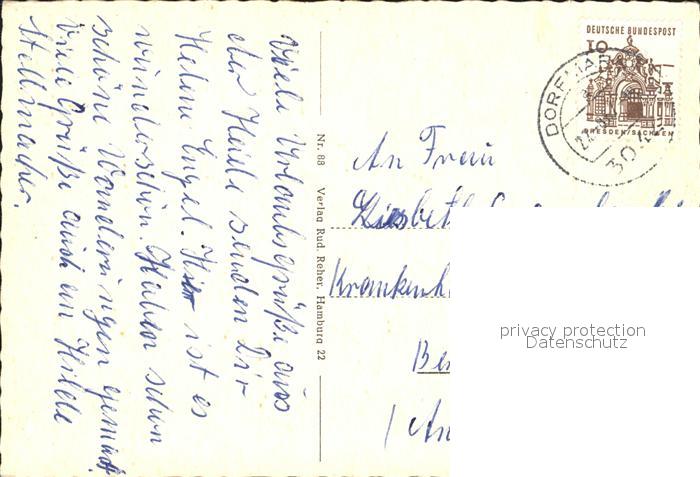 Viele Urlaubsgrüße aus
der Heide senden Dir
Helene Engel. Hier ist es
wunderschön. Haben schon
schöne Wanderungen gemacht
Viele Grüße auch an Hilde
Stellmacher.
Nr. 88 Verlag Rud. Reher, Hamburg 22
DEUTSCHE BUNDESPOST
10
DRESDEN/SACHSEN
DORFMARK
An Frau
Liesbeth
Krankenh
Ber
privacy protection
Datenschutz